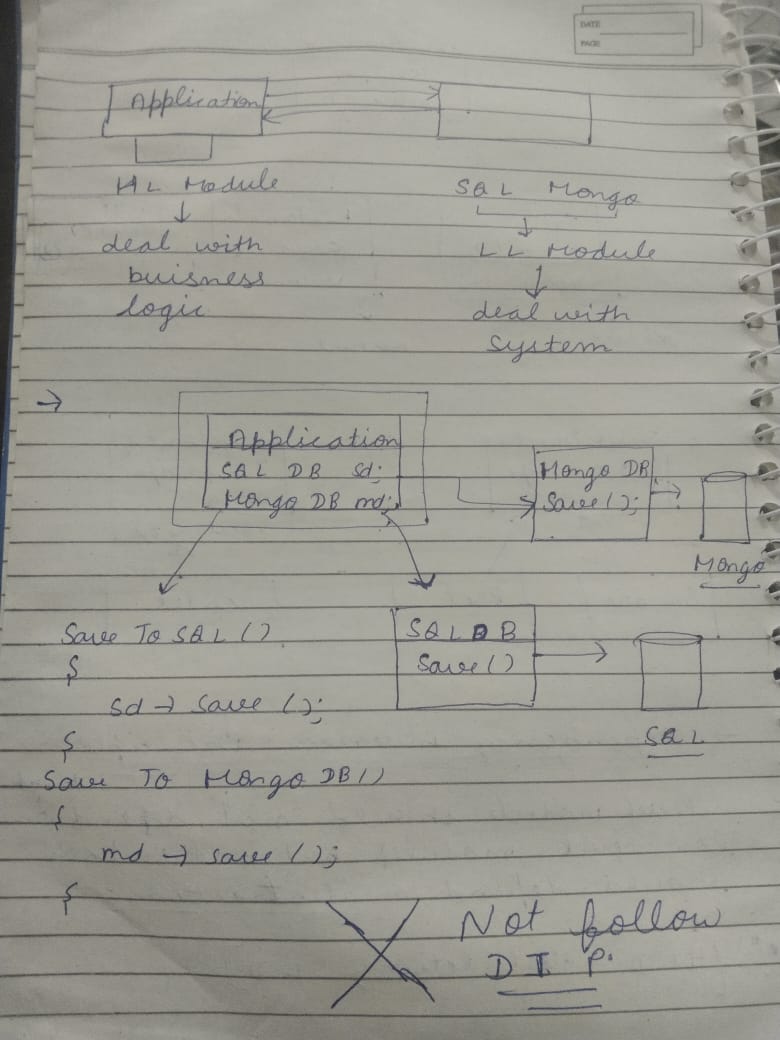 DATE
PAGE
Application
HL Module
↓
deal with
buisness
logic
SQL Mongo
↓
LL Module
↓
deal with
system
→
Application
SQL DB sd;
Mongo DB md;
Mongo DB
Save();
Mongo
Save To SQL ()
{
sd → save ();
}
SQL DB
Save()
SQL
Save To Mongo DB()
{
md → save ();
}
Not follow
D I P.